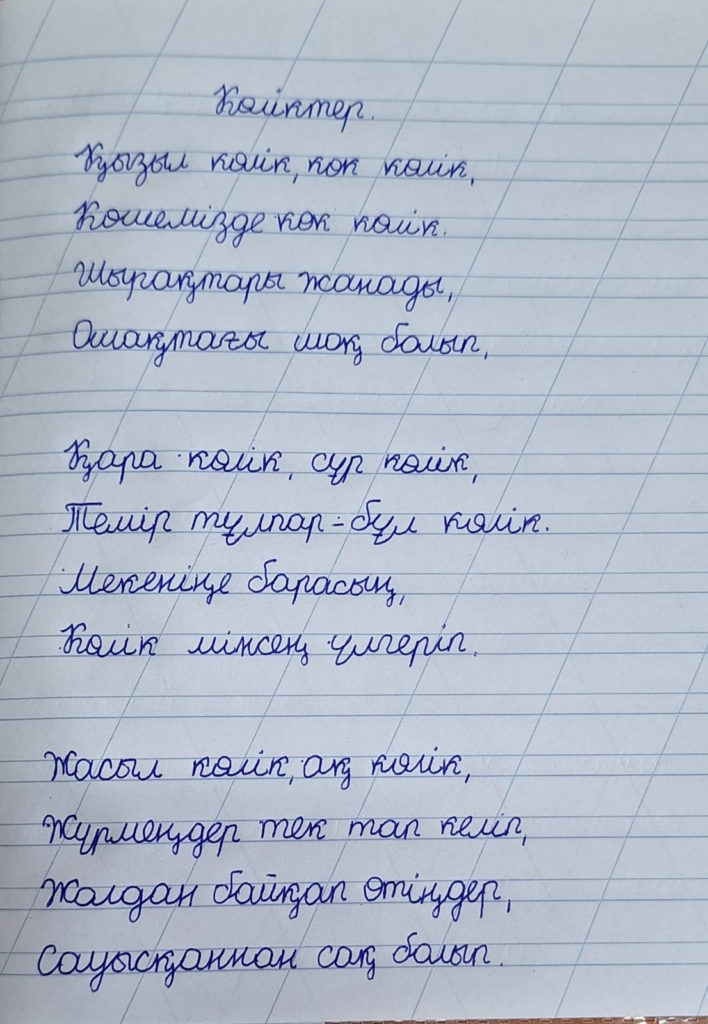 Көліктер.
Қызыл көлік, көк көлік,
Көшемізде көк көлік.
Шырақтары жанады,
Ошақтағы шоқ болып,
Қара көлік, сұр көлік,
Темір тұлпар-бұл көлік.
Мекеніңе барасың,
Көлік мінсең үлгеріп.
Жасыл көлік, ақ көлік,
Жүрмеңдер тек тап келіп,
Жолдан байқап өтіңдер,
Сауысқаннан сақ болып.